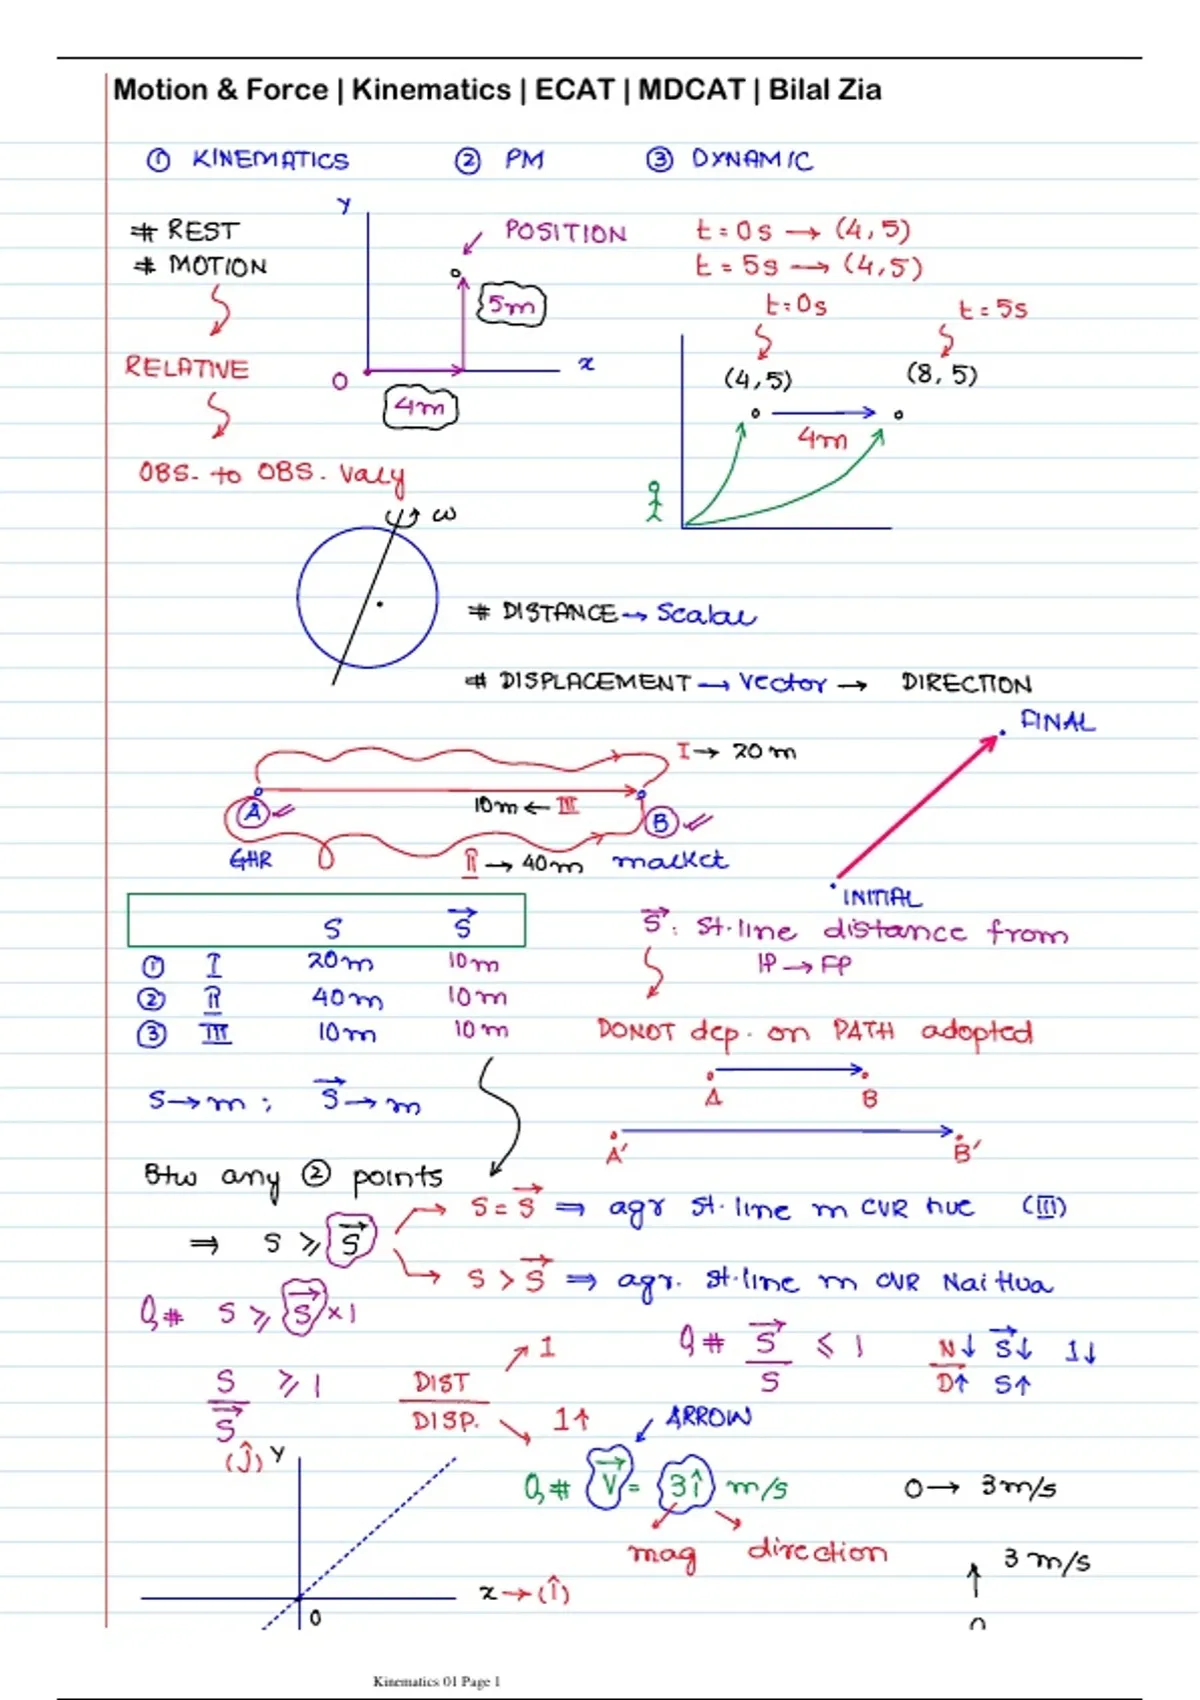 Motion & Force | Kinematics | ECAT | MDCAT | Bilal Zia
① KINEMATICS ② PM ③ DYNAMIC
# REST
# MOTION
RELATIVE
OBS. to OBS. Vary
Y
POSITION
5m
x
O
4m
t = 0s → (4,5)
t = 5s → (4,5)
t = 0s t = 5s
(4,5) (8,5)
4m
ω
# DISTANCE → Scalar
# DISPLACEMENT → Vector → DIRECTION
FINAL
INITIAL
I → 20m
10m ← III
A B
GHR II → 40m market
S S⃗
① I 20m 10m
② II 40m 10m
③ III 10m 10m
S⃗ : St. line distance from
IP → FP
DONOT dep. on PATH adopted
A B
A' B'
S → m ; S⃗ → m
Btw any ② points
⇒ S ⩾ S⃗
S = S⃗ ⇒ agr St. line m CVR hue (III)
S > S⃗ ⇒ agr. St. line m CVR Nai Hua
Q# S ⩾ S⃗ × 1
S / S⃗ ⩾ 1
DIST / DISP.
1
1↑
Q# S⃗ / S ⩽ 1
N↓ S⃗↓ 1↓
D↑ S↑
ARROW
Q# V⃗ = 3î m/s
mag direction
O → 3m/s
↑ 3m/s
O
(ĵ) Y
x → (î)
O
Kinematics 01 Page 1